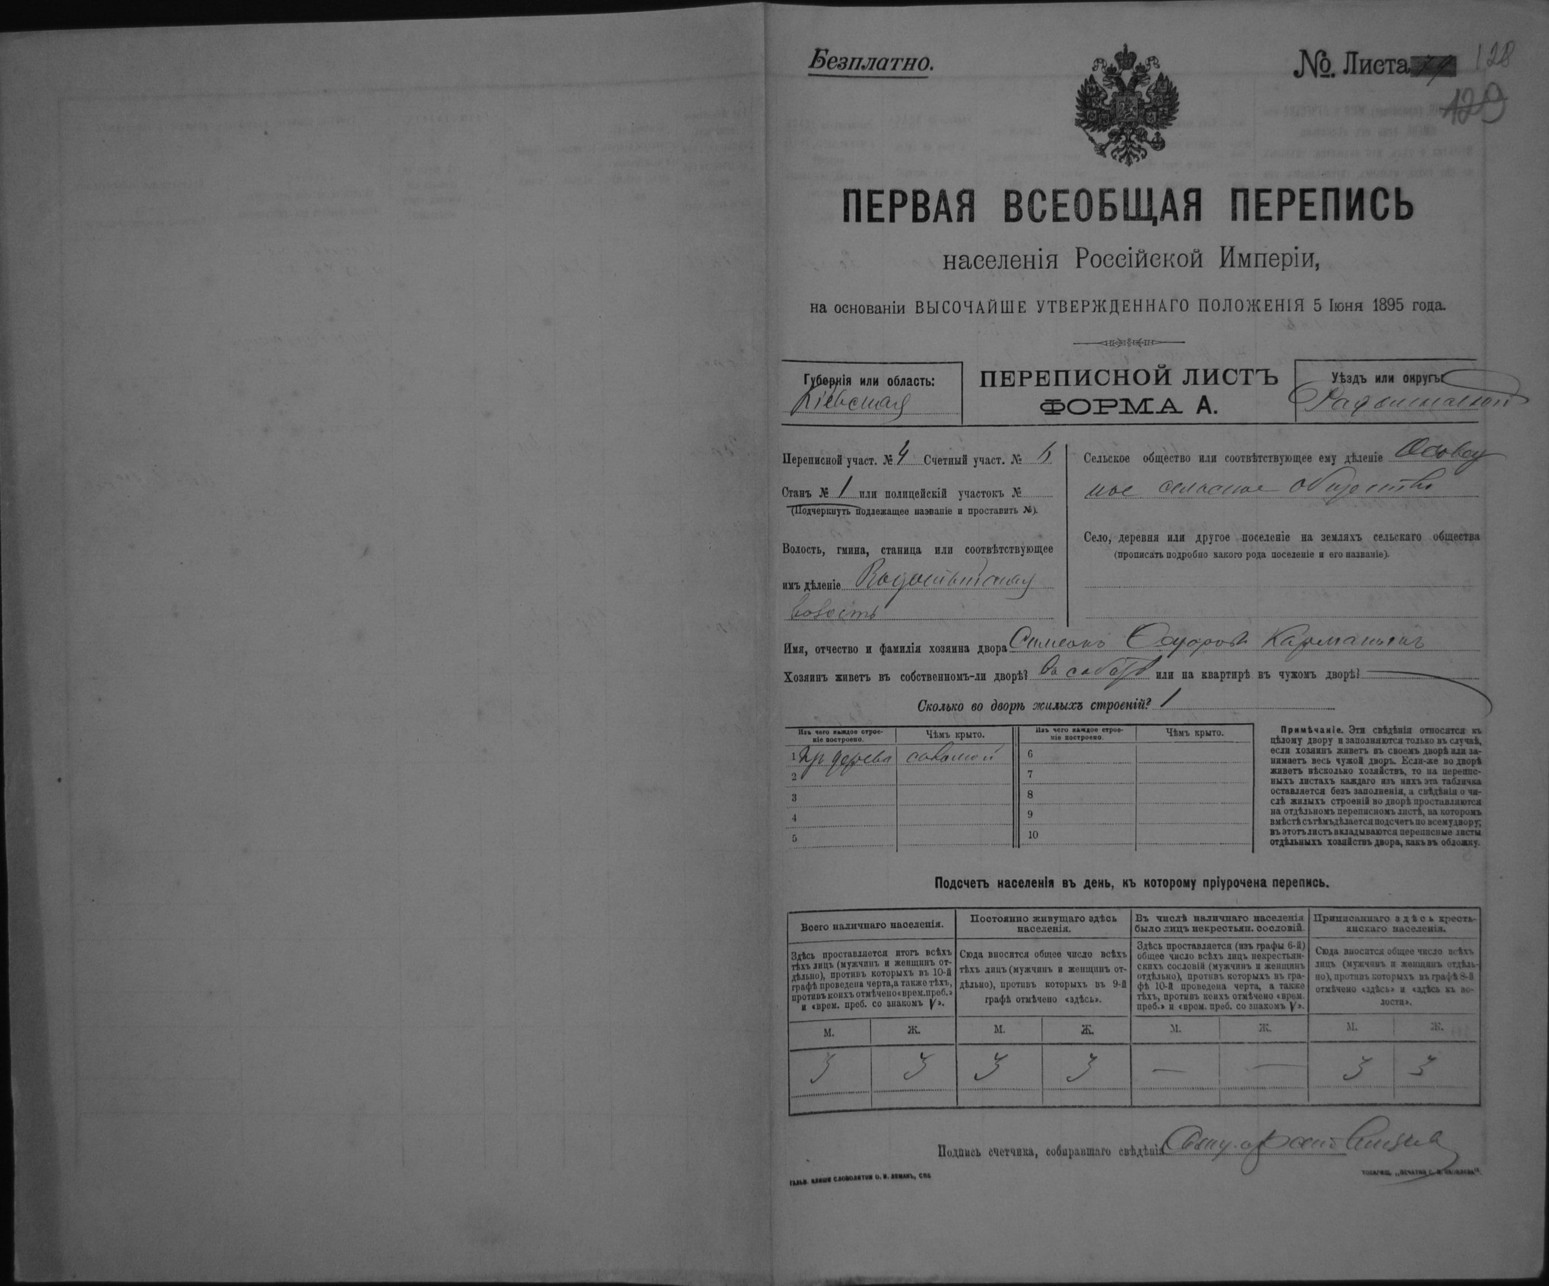 Безплатно.
№. Листа 128
129
ПЕРВАЯ ВСЕОБЩАЯ ПЕРЕПИСЬ
населенія Россійской Имперіи,
на основаніи ВЫСОЧАЙШЕ УТВЕРЖДЕННАГО ПОЛОЖЕНІЯ 5 Іюня 1895 года.
Губернія или область:
Кіевская
ПЕРЕПИСНОЙ ЛИСТЪ
ФОРМА А.
Уѣздъ или округъ:
Радомысльскій
Переписной участ. № 4 Счетный участ. №
Станъ № 1 или полицейскій участокъ №
(Подчеркнуть подлежащее названіе и проставить №).
Волость, гмина, станица или соотвѣтствующее
имъ дѣленіе
волость
Сельское общество или соотвѣтствующее ему дѣленіе
ное сельское общество
Село, деревня или другое поселеніе на земляхъ сельскаго общества
(прописать подробно какого рода поселеніе и его названіе).
Имя, отчество и фамилія хозяина двора Симеонъ
Хозяинъ живетъ въ собственномъ-ли дворѣ? или на квартирѣ въ чужомъ дворѣ?
Сколько во дворѣ жилыхъ строеній? 1
Изъ чего каждое строе-
ніе построено.
Чѣмъ крыто.
Изъ чего каждое строе-
ніе построено.
Чѣмъ крыто.
1 Изъ дерева соломой 6
2 7
3 8
4 9
5 10
Примѣчаніе. Эти свѣдѣнія относятся къ
цѣлому двору и заполняются только въ случаѣ,
если хозяинъ живетъ въ своемъ дворѣ или за-
нимаетъ весь чужой дворъ. Если-же во дворѣ
живетъ нѣсколько хозяйствъ, то на перепис-
ныхъ листахъ каждаго изъ нихъ эта табличка
оставляется безъ заполненія, а свѣдѣнія о чи-
слѣ жилыхъ строеній во дворѣ проставляются
на отдѣльномъ переписномъ листѣ, на которомъ
вмѣстѣ съ тѣмъ дѣлается подсчетъ по всему двору;
въ этотъ листъ вкладываются переписные листы
отдѣльныхъ хозяйствъ двора, какъ въ обложку.
Подсчетъ населенія въ день, къ которому пріурочена перепись.
Всего наличнаго населенія.
Здѣсь проставляется итогъ всѣхъ
тѣхъ лицъ (мужчинъ и женщинъ от-
дѣльно), противъ которыхъ въ 10-й
графѣ проведена черта, а также тѣхъ,
противъ коихъ отмѣчено «врем. преб.»
и «врем. преб. со знакомъ V».
Постоянно живущаго здѣсь
населенія.
Сюда вносится общее число всѣхъ
тѣхъ лицъ (мужчинъ и женщинъ от-
дѣльно), противъ которыхъ въ 9-й
графѣ отмѣчено «здѣсь».
Въ числѣ наличнаго населенія
было лицъ некрестьян. сословій.
Здѣсь проставляется (изъ графы 6-й)
общее число всѣхъ лицъ некрестьян-
скихъ сословій (мужчинъ и женщинъ
отдѣльно), противъ которыхъ въ гра-
фѣ 10-й проведена черта, а также
тѣхъ, противъ коихъ отмѣчено «врем.
преб.» и «врем. преб. со знакомъ V».
Приписаннаго здѣсь кресть-
янскаго населенія.
Сюда вносится общее число всѣхъ
лицъ (мужчинъ и женщинъ отдѣль-
но), противъ которыхъ въ графѣ 8-й
отмѣчено «здѣсь» и «здѣсь въ во-
лости».
М. Ж. М. Ж. М. Ж. М. Ж.
3 3 3 3 — — 3 3
Подпись счетчика, собиравшаго свѣдѣнія